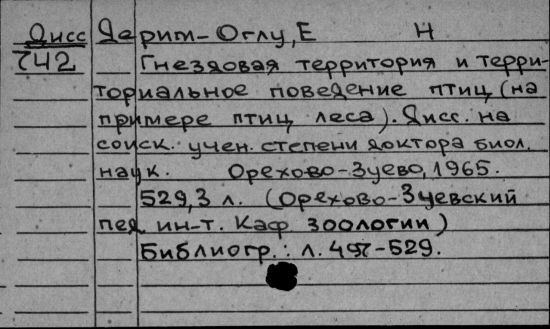 Дисс Дерим-Оглу, Е Н
742 Гнездовая территория и терри-
ториальное поведение птиц (на
примере птиц леса). Дисс. на
соиск. учен. степени доктора биол.
наук. Орехово-Зуево, 1965.
529,3 л. (Орехово-Зуевский
пед ин-т. Каф зоологии)
Библиогр.: л. 497-529.